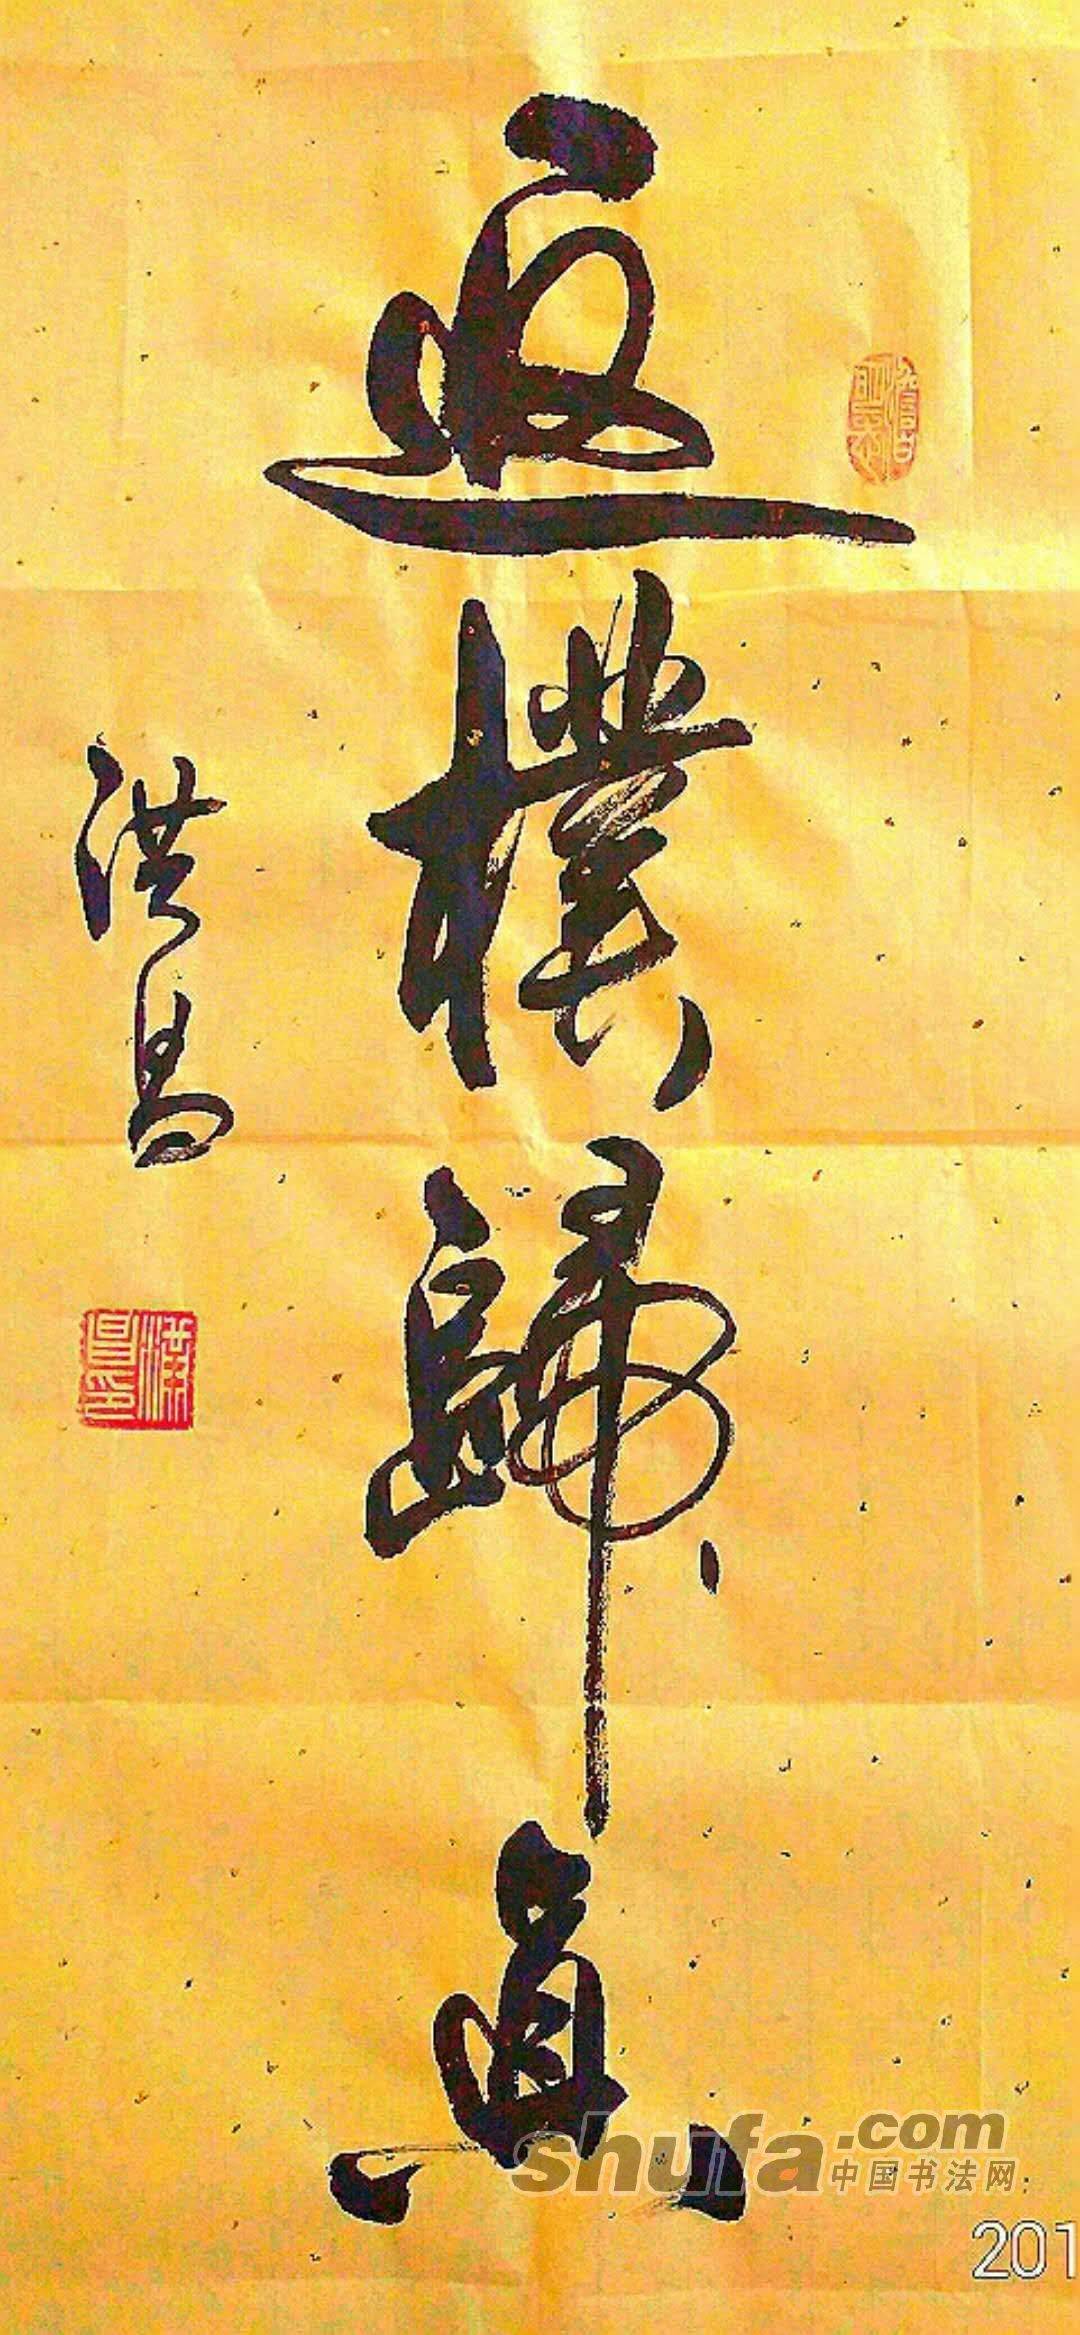 返樸歸真
洪昌
shufa.com
中国书法网
201